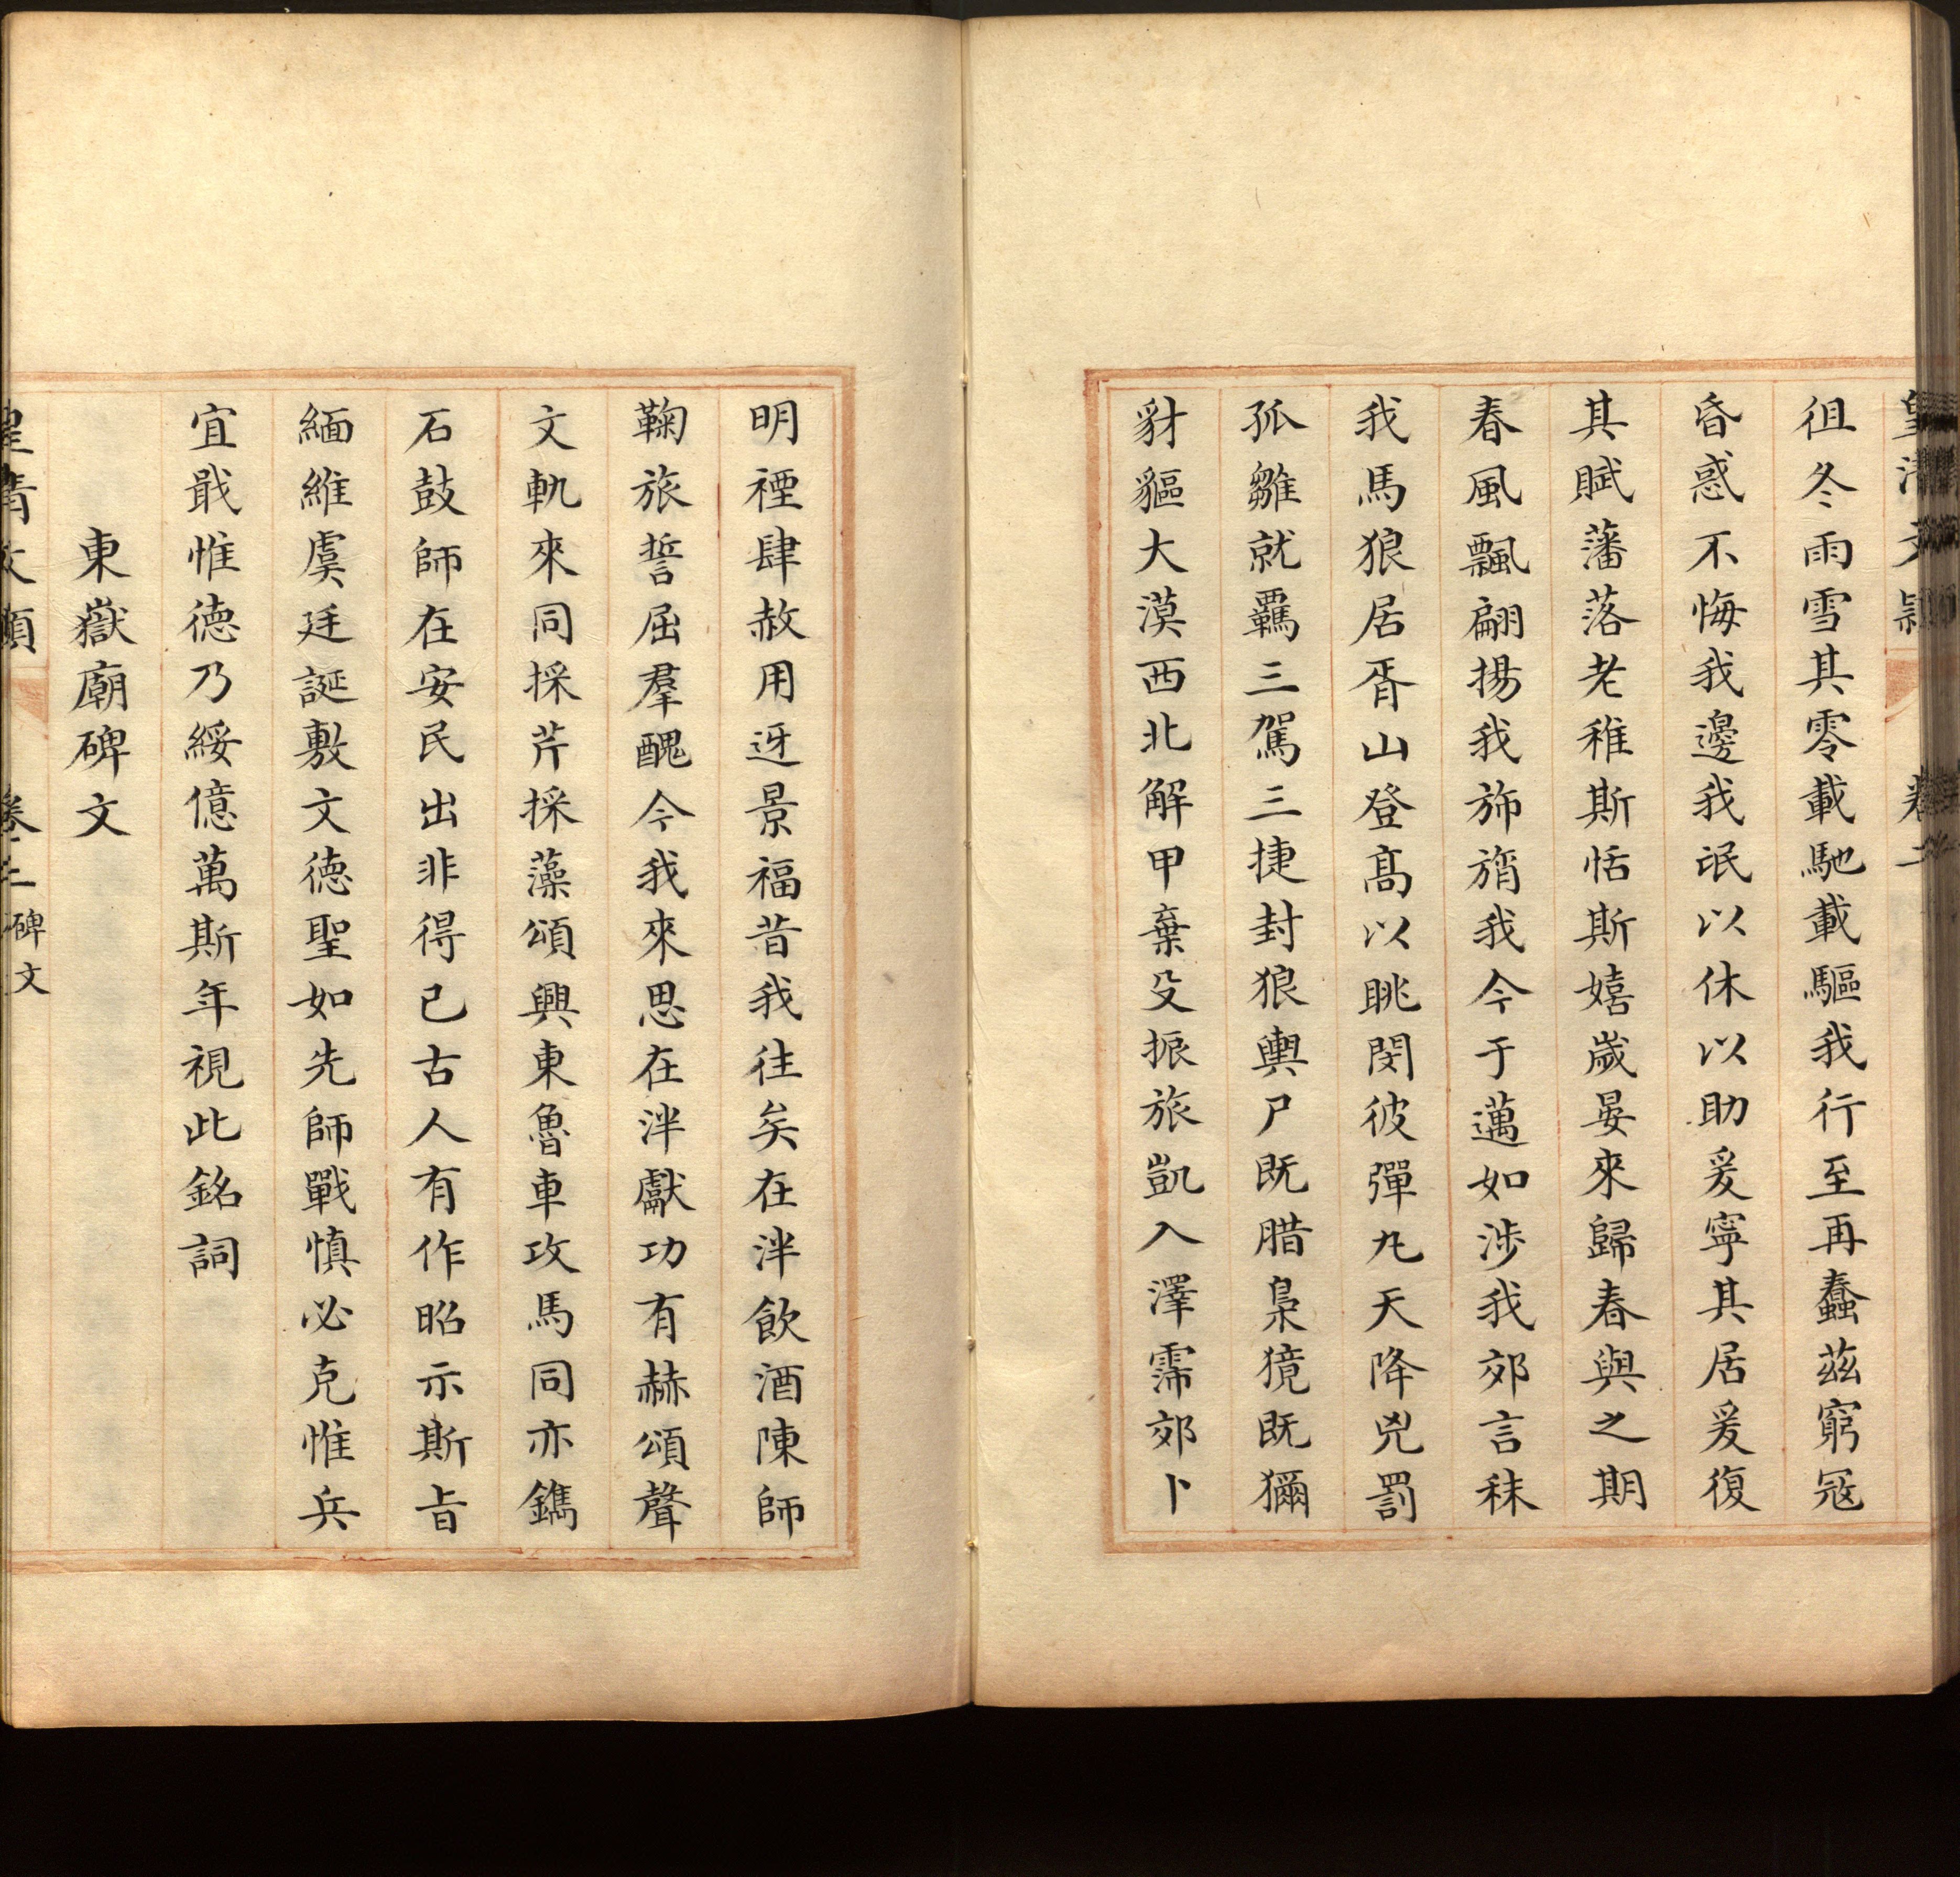 皇清文穎 卷二
徂冬雨雪其零載馳載驅我行至再蠢茲窮冦
昏惑不悔我邊我氓以休以助爰寧其居爰復
其賦藩落老稚斯恬斯嬉歲晏來歸春與之期
春風飄翩揚我斾旓我今于邁如涉我郊言秣
我馬狼居胥山登髙以眺閔彼彈丸天降兇罰
孤雛就羈三駕三捷封狼輿尸既腊梟獍既獮
豺貙大漠西北解甲棄殳振旅凱入澤霈郊卜
明禋肆赦用迓景福昔我往矣在泮飲酒陳師
鞠旅誓屈羣醜今我來思在泮獻功有赫頌聲
文軌來同採芹採藻頌興東魯車攻馬同亦鐫
石鼓師在安民出非得已古人有作昭示斯旨
緬維虞廷誕敷文德聖如先師戰慎必克惟兵
宜戢惟德乃綏億萬斯年視此銘詞
東嶽廟碑文
皇清文穎 卷二 碑文